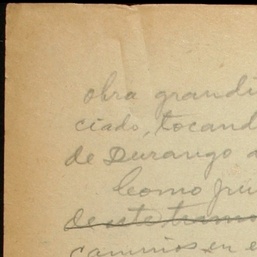 obra grandi
ciado, tocand
de Durango a
Como pri
de este tramo
caminos en e